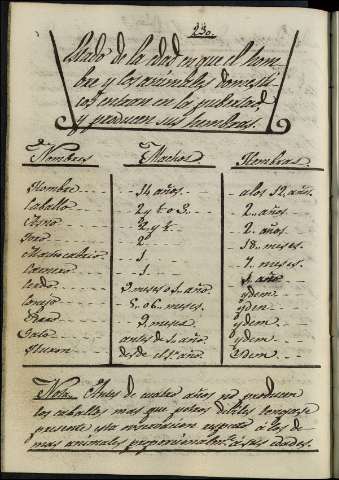 230.
Estado de la edad en que el hom-
bre y los animales domesti-
cos entran en la pubertad,
y producen sus hembras.
Nombres Machos Hembras.
Hombre 14 años. a los 12 años.
Caballo 2 y ½ o 3. 2 años.
Asno 2 y ½ 2 años.
Toro 2 18 meses.
Macho cabrio 1 7 meses.
Carnero 1 1 año
Cerdo 9 meses o 1 año ydem
Conejo 5 o 6 meses. ydem
Perro 9 meses ydem
Gato antes de 1 año ydem
Huron desde el 1º año Ydem
Nota. Antes de cuatro años no producen
los caballos mas que potros débiles tengase
presente esta observacion respecto a los de-
mas animales proporcionalmte. a sus edades.